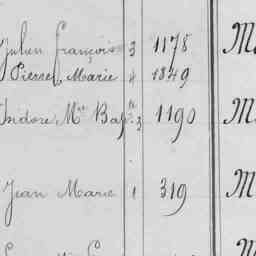 Julien françois 3 1178 M
Pierre, Marie 4 1349
Isidore, Mie Bapte 3 1190 M
Jean Marie 1 319 M